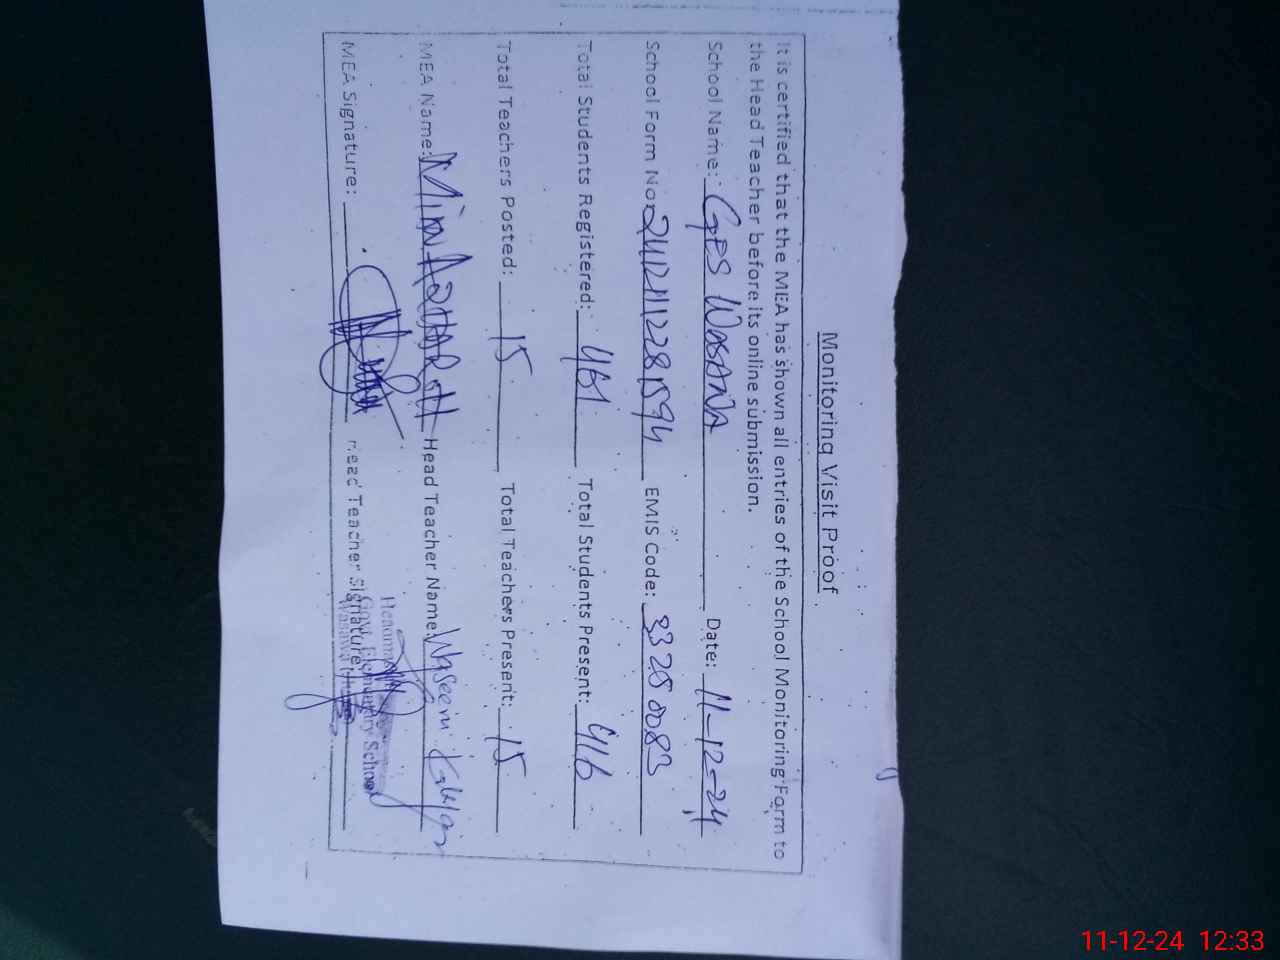 Monitoring Visit Proof
It is certified that the MEA has shown all entries of the School Monitoring Form to
the Head Teacher before its online submission.
School Name: GES WASANA Date: 11-12-24
School Form No: 2412112281594 EMIS Code: 33250083
Total Students Registered: 461 Total Students Present: 416
Total Teachers Posted: 15 Total Teachers Present: 15
MEA Name: Head Teacher Name: Waseem
MEA Signature: Head Teacher Signature:
Govt. Elementary School
11-12-24 12:33